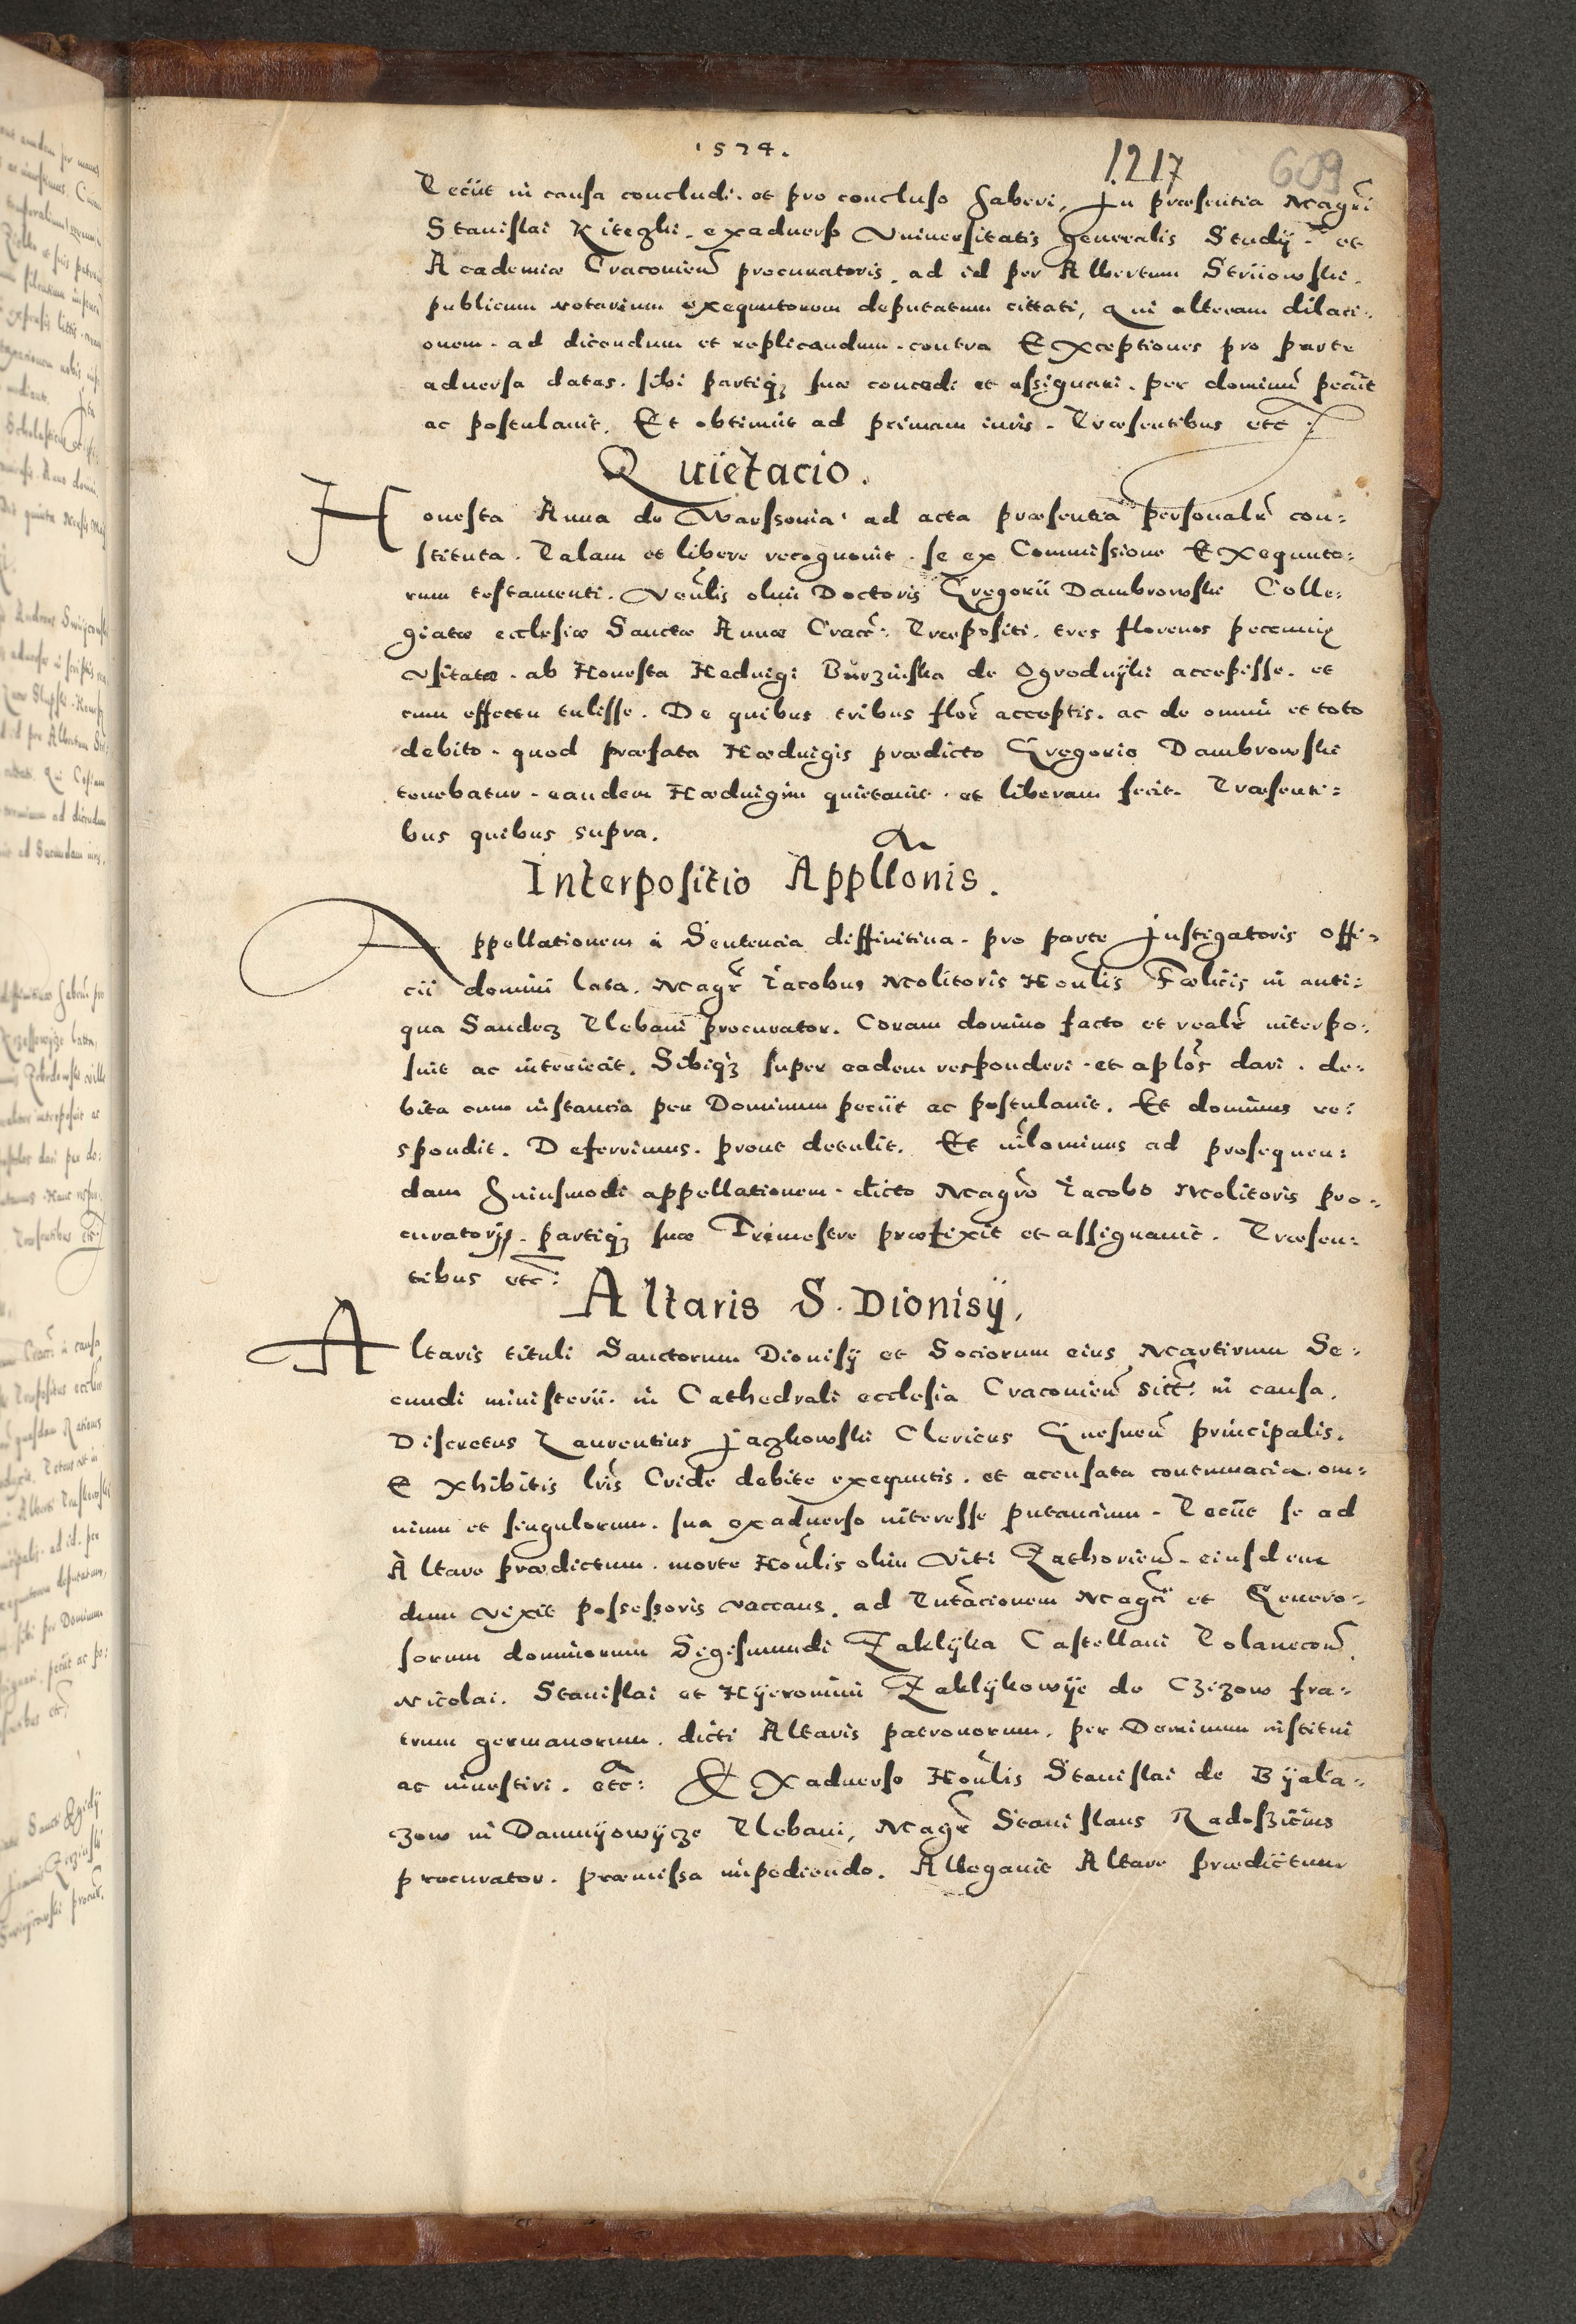 1574.
1217
609
Peciit in causa concludi. et pro concluso haberi, In præsentia Magri
Stanislai Kitezki. exaduerso Vniuersitatis generalis Studÿ. et
Academiæ Cracouien̄ procuratoris. ad id per Albertum Striiowski.
publicum notarium exequutorem deputatum cittati, Qui alteram dilati:
onem. ad dicendum et replicandum. contra Exceptiones pro parte
aduersa datas. sibi partiqȝ suæ concedi et assignari. per dominū peciit
ac postulauit. Et obtinuit ad primam iuris. Præsentibus etc:
Quietacio.
Honesta Anna de Warssouia ad acta præsentia personalr̄ con:
stituta. Palam et libere recognouit. se ex Commissione Exequuto:
rum testamenti. Venlis olim Doctoris Gregorii Dambrowski Colle:
giatæ ecclesiæ Sanctæ Annæ Cracō: Præpositi. tres florenos pecuniæ
vsitatæ. ab Honesta Heduigi Burzinska de Ogrodnÿki accepisse. et
cum effectu tulisse. De quibus tribus flor̄ acceptis. ac de omni et toto
debito. quod præfata Hæduigis prædicto Gregorio Dambrowski
tenebatur. eandem Hæduigim quietauit. et liberam fecit. Præsenti:
bus quibus supra.
Interpositio Appllonis.
Appellationem à Sentencia diffinitiua. pro parte Instigatoris offi:
cii domini lata. Magr̄ Iacobus Molitoris Honlis Fœlicis in anti:
qua Sandecz Plebani procurator. Coram domino facto et realr̄ interpo:
suit ac interiecit. Sibiqȝ super eadem responderi. et aplos dari. de:
bita cum instancia per Dominum peciit ac postulauit. Et dominus re:
spondit. Deferrimus. prout detulit. Et nilominus ad prosequen:
dam huiusmodi appellationem. dicto Magro Iacobo Molitoris pro:
curatorÿ. partiqȝ suæ Trimestre præfixit et assignauit. Præsen:
tibus etc:
Altaris S. Dionisÿ,
Altaris tituli Sanctorum Dionisÿ et Sociorum eius Martirum Se:
cundi ministerii. in Cathedrali ecclesia Cracouien̄ sitt. in causa.
Discretus Laurentius Jaczkowski Clericus Gnesnen̄ principalis.
Exhibitis lris Cridæ debite exequutis. et accusata contumacia om:
nium et singulorum. sua exaduerso interesse putancium. Peciit se ad
Altare prædictum. morte Honlis olim Viti Zathorien̄. eiusdem
dum vixit possessoris vaccans. ad Pntacionem Magci et Genero:
sorum dominorum Sigismundi Zaklÿka Castellani Polanecen̄.
Nicolai. Stanislai et Hÿeronimi Zaklÿkowÿe de Czizow fra:
trum germanorum. dicti Altaris patronorum. per Dominum institui
ac inuestiri. etc: Exaduerso Honlis Stanislai de Bÿala:
zow in Damnÿowÿcze Plebani, Magr̄ Stanislaus Radoszicius
procurator. præmissa impediendo. Allegauit Altare prædictum